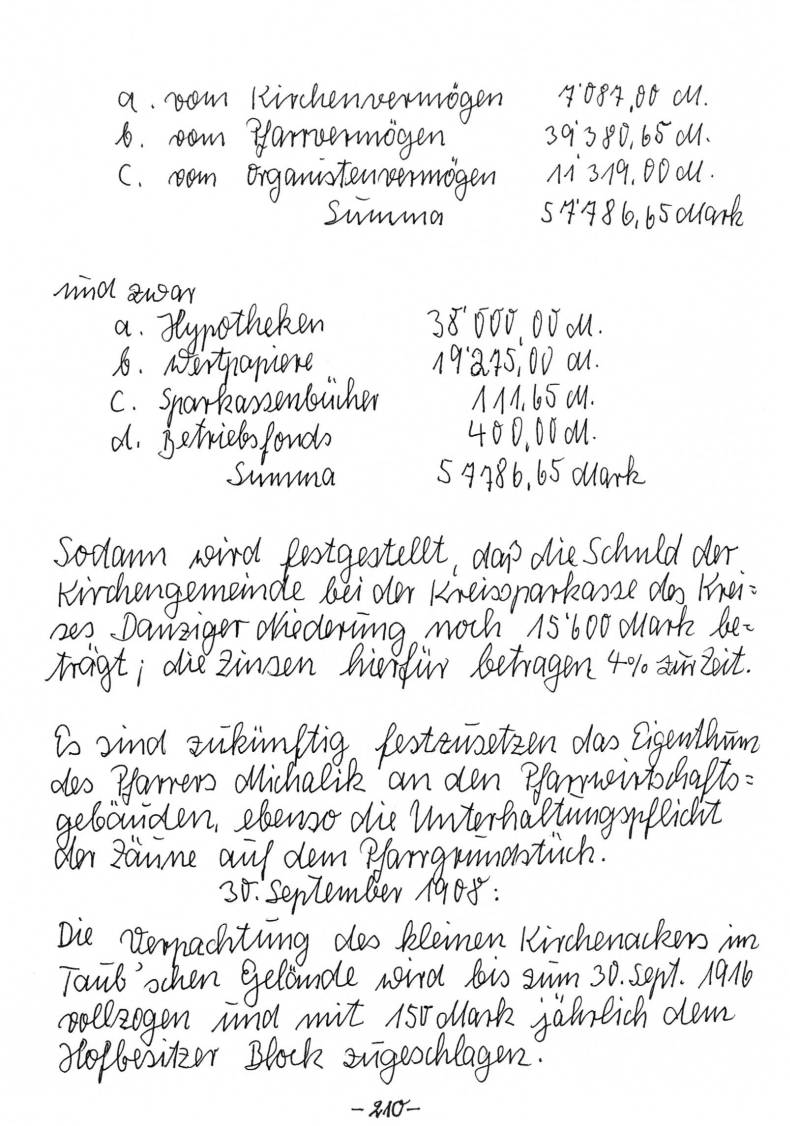 a. vom Kirchenvermögen 7'087,00 M.
b. vom Pfarrvermögen 39'380,65 M.
c. vom Organistenvermögen 11'319,00 M.
Summa 57'786,65 Mark
und zwar
a. Hypotheken 38'000,00 M.
b. Wertpapiere 19'275,00 M.
c. Sparkassenbücher 111,65 M.
d. Betriebsfonds 400,00 M.
Summa 57786,65 Mark
Sodann wird festgestellt, daß die Schuld der
Kirchengemeinde bei der Kreissparkasse des Krei=
ses Danziger Niederung noch 15'600 Mark be=
trägt; die Zinsen hierfür betragen 4% zur Zeit.
Es sind zukünftig festzusetzen das Eigenthum
des Pfarrers Michalik an den Pfarrwirtschafts=
gebäuden, ebenso die Unterhaltungspflicht
der Zäune auf dem Pfarrgrundstück.
30. September 1908:
Die Verpachtung des kleinen Kirchenackers im
Taub'schen Gelände wird bis zum 30. Sept. 1916
vollzogen und mit 150 Mark jährlich dem
Hofbesitzer Block zugeschlagen.
-210-